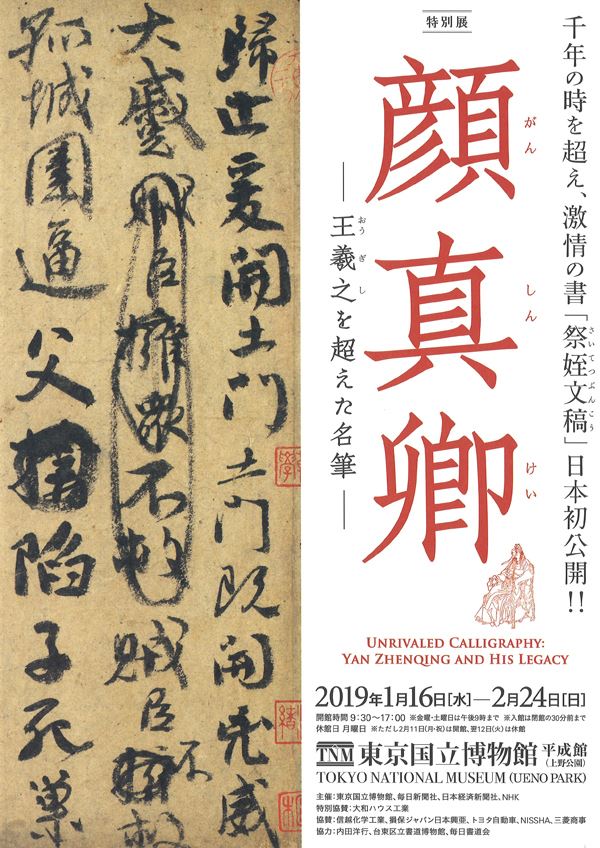 特別展
千年の時を超え、激情の書「祭姪文稿」日本初公開!!
さいてつぶんこう
顔真卿
がん しん けい
―王羲之を超えた名筆―
おう ぎ し
UNRIVALED CALLIGRAPHY:
YAN ZHENQING AND HIS LEGACY
2019年1月16日[水]―2月24日[日]
開館時間 9:30〜17:00 ※金曜・土曜日は午後9時まで ※入館は閉館の30分前まで
休館日 月曜日 ※ただし2月11日(月・祝)は開館、翌12日(火)は休館
TNM 東京国立博物館 平成館 (上野公園)
TOKYO NATIONAL MUSEUM (UENO PARK)
主催:東京国立博物館、毎日新聞社、日本経済新聞社、NHK
特別協賛:大和ハウス工業
協賛:信越化学工業、損保ジャパン日本興亜、トヨタ自動車、NISSHA、三菱商事
協力:内田洋行、台東区立書道博物館、毎日書道会
歸止爰開土門土門既開兇威
大蹙賊臣擁衆不救賊臣不救
孤城圍逼父陷子死巢